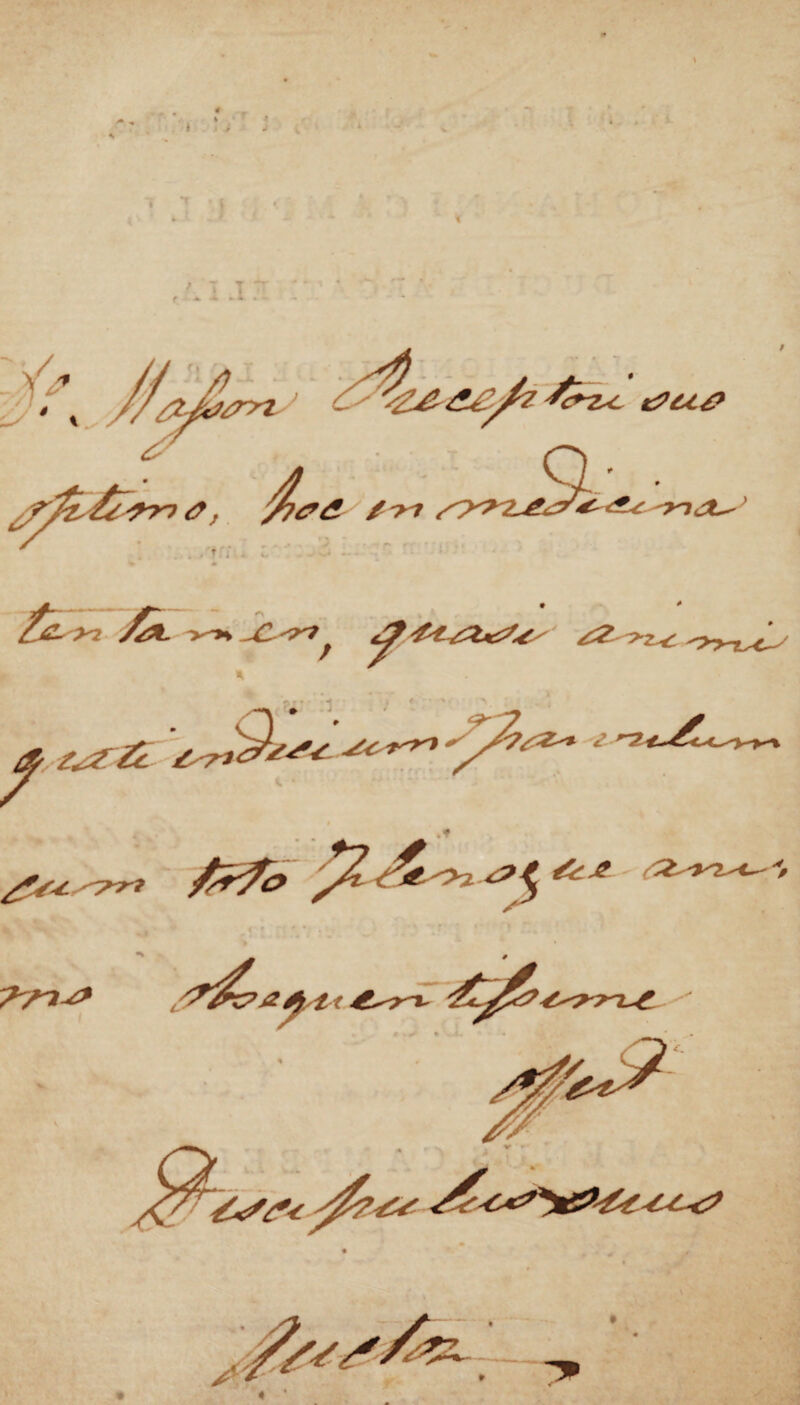 Do. Masson Preceptori suo
optimo, hoc in medicina
tentamen, quasi animi
grati indicium parvulum
cum toto plenoque ani-
mo obsequentissime
offert
Discipulus suus
Auctor.